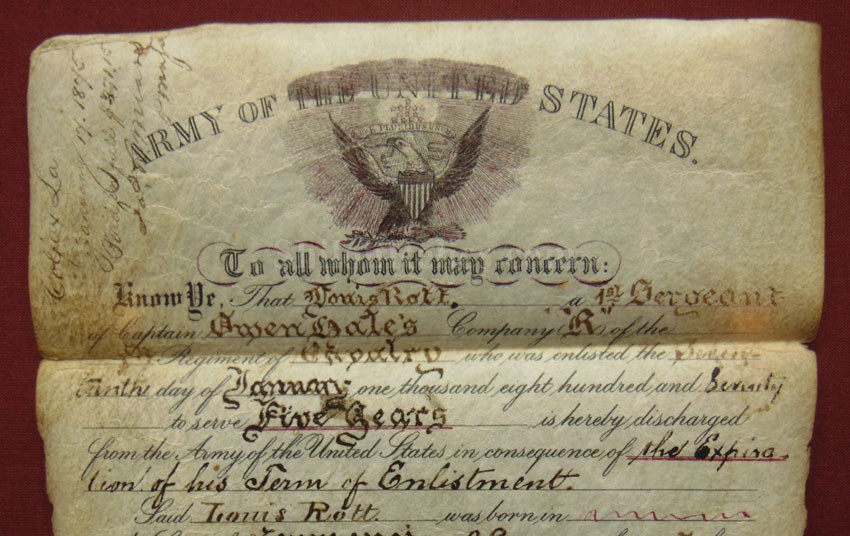 ARMY OF THE UNITED STATES.
E PLURIBUS UNUM
To all whom it may concern:
Know Ye, That Louis Rott. a 1st Sergeant
of Captain Owen Hale's Company "K" of the
Regiment of Cavalry who was enlisted the Seven-
teenth day of January one thousand eight hundred and Seventy
to serve Five Years is hereby discharged
from the Army of the United States in consequence of the Expira-
tion of his Term of Enlistment.
Said Louis Rott. was born in
Colfax La
January 17. 1875
Paid